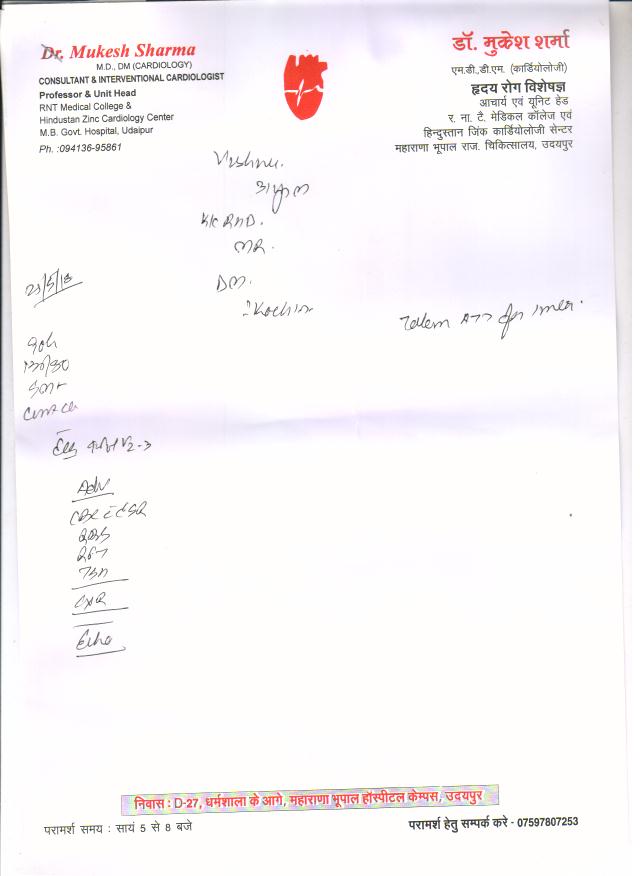 Dr. Mukesh Sharma
M.D., DM (CARDIOLOGY)
CONSULTANT & INTERVENTIONAL CARDIOLOGIST
Professor & Unit Head
RNT Medical College &
Hindustan Zinc Cardiology Center
M.B. Govt. Hospital, Udaipur
Ph. :094136-95861
डॉ. मुकेश शर्मा
एम.डी.,डी.एम. (कार्डियोलॉजी)
हृदय रोग विशेषज्ञ
आचार्य एवं यूनिट हेड
र. ना. टै. मेडिकल कॉलेज एवं
हिन्दुस्तान जिंक कार्डियोलॉजी सेन्टर
महाराणा भूपाल राज. चिकित्सालय, उदयपुर
K/C RHD.
MR.
DM.
for
Adv
CBC ESR
RBS
RFT
CXR
Echo
निवास : D-27, धर्मशाला के आगे, महाराणा भूपाल हॉस्पीटल केम्पस, उदयपुर
परामर्श समय : सायं 5 से 8 बजे
परामर्श हेतु सम्पर्क करे - 07597807253